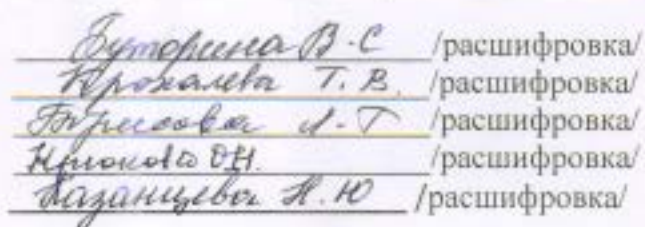 Буторина В.С /расшифровка/
Крохалева Т.В. /расшифровка/
Борисова Л.Т /расшифровка/
Крюкова О.Н. /расшифровка/
Казанцева Н.Ю /расшифровка/